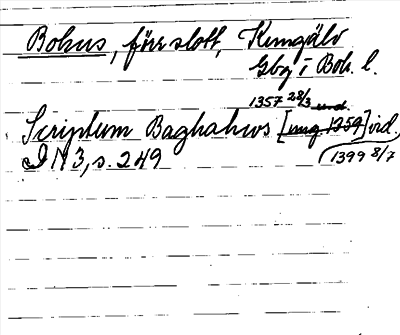 Bohus, förr slott, Kungälv
Gbg i Boh. l.
1357 28/3 und.
Scriptum Baghahws [ung 1359] vid.
DN 3, s. 249
1399 8/7